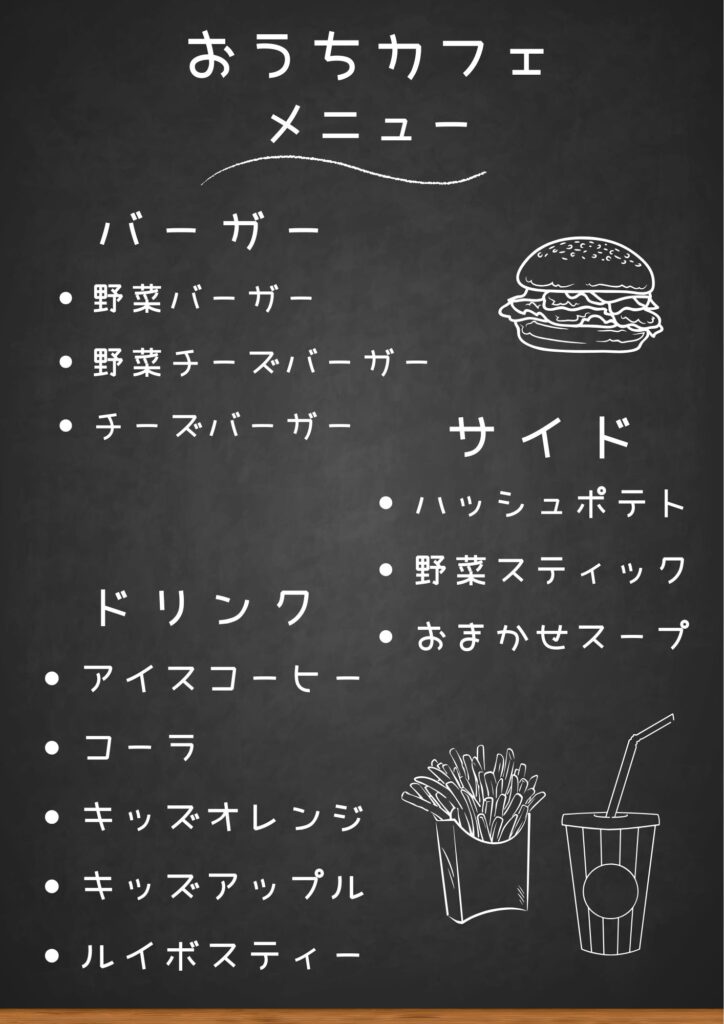 おうちカフェ
メニュー
バーガー
• 野菜バーガー
• 野菜チーズバーガー
• チーズバーガー
サイド
• ハッシュポテト
• 野菜スティック
• おまかせスープ
ドリンク
• アイスコーヒー
• コーラ
• キッズオレンジ
• キッズアップル
• ルイボスティー